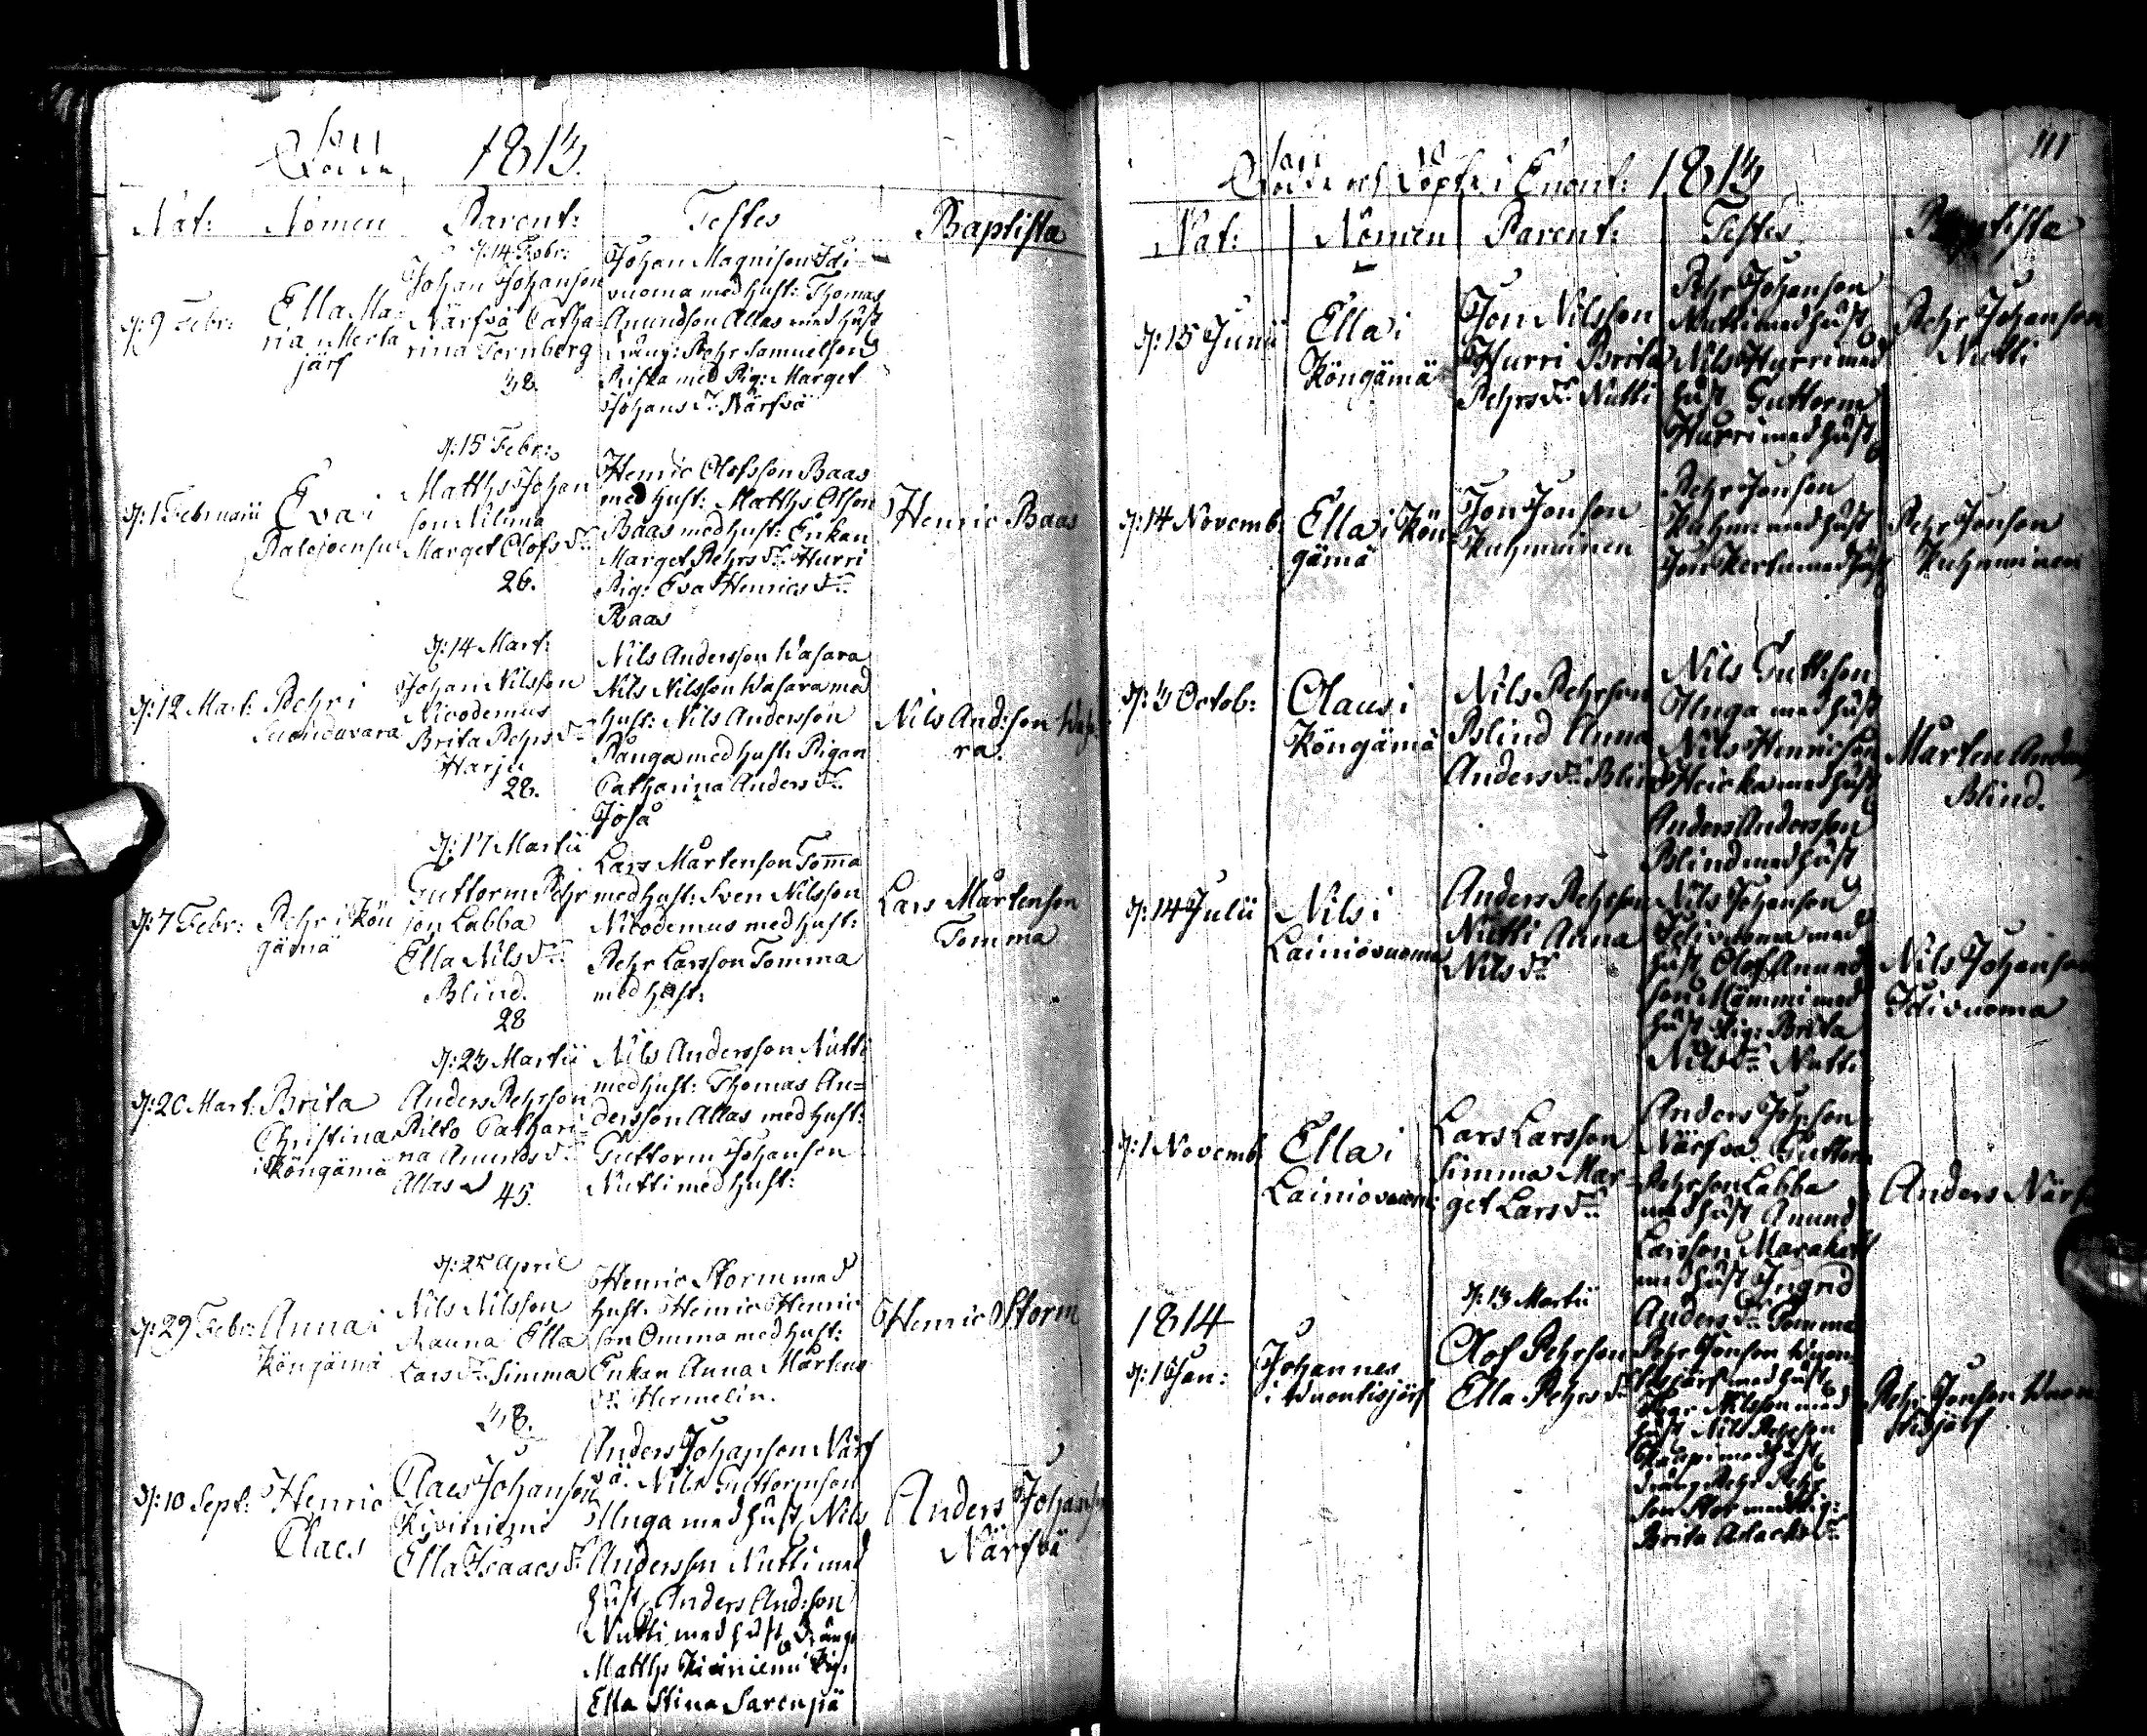 1813.
Nat: Nomen Parent: Testes Baptista
d: 14 Febr:
d: 9 Febr:
Ella Ma-
ria Merta
järf
Johan Johanson
Närfvä Catha-
rina Fernberg
38.
Johan Magnison Idi-
vuoma med hust: Thomas
Amundson Allas med hust
Dräng: Pehr Samuelson
med Pig: Marget
Johans dr Närfvä
d: 15 Febr:
d: 1 Februarii
Eva i
Matths Johan
son Niluna
Marget Olofs dr
26.
Henric Olofsson Baas
med hust: Matths Olson
Baas med hust: Enkan
Marget Pehrs dr Hurri
Pig: Eva Henrics dr
Baas
Henric Baas
d: 14 Mart:
d: 12 Mart:
Pehr i
Johan Nilsson
Nicodemus
Brita Pehrs dr
Harju
28.
Nils Andersson Wasara
Nils Nilsson Wasara med
hust: Nils Andersson
Panga med hust: Pigan
Catharina Anders dr
Joså
Nils And:son Wasa-
ra.
d: 17 Martii
d: 7 Febr:
Pehr i Kön
gämä
Guttorm Pehr
son Labba
Ella Nils dr
Blind.
28
Lars Mårtenson Tomma
med hust: Sven Nilsson
Nicodemus med hust:
Pehr Larsson Tomma
med hust:
Lars Mårtenson
Tomma
d: 23 Martii
d: 20 Mart:
Brita
Christina
i Köngämä
Anders Pehrson
Pilto Cathari-
na Amunds dr
Allas
45.
Nils Andersson Nutti
med hust: Thomas An-
dersson Allas med hust:
Guttorm Johanson
Nutti med hust:
d: 25 April
d: 29 Febr:
Anna i
Köngämä
Nils Nilsson
Rauna Ella
Lars dr Simma
38.
Henric Storm med
hust: Henric Henric
son Omma med hust:
Enkan Anna Mårtens
dr Hermelin.
Henric Storm
d: 10 Sept:
Henric
Claes
Claes Johanson
Kiviniemi
Ella Isaacs dr
Anders Johanson Närf
vä. Nils Guttormson
Unga med hust Nils
Andersson Nutti med
hust Anders And:son
Nutti med hust Dräng
Matths Kiviniemi Pig.
Ella Stina Sarenpä
Anders Johanson
Närfvä
111
Födde och Döpte i Enont: 1813
Nat: Nomen Parent: Testes Baptista
d: 15 Junii
Ella i
Köngämä
Jon Nilsson
Hurri Brita
Pehrs dr Nutti
Pehr Johanson
Nutti med hust
Nils Hurri med
hust Guttorm
Hurri med hust
Pehr Johanson
Nutti
d: 14 Novemb:
Ella i Kön-
gämä
Jon Jonson
Kuhmuinen
Pehr Jonson
med hust
Jon med hust
Pehr Jonson
Kuhmuinen
d: 3 Octob:
Olaus i
Köngämä
Nils Pehrson
Blind Anna
Anders dr Blind
Nils Gutt:son
Unga med hust
Nils Henricson
Heicka med hust
Anders Andersson
Blind med hust
Mårten Anders
Blind.
d: 14 Julii
Nils i
Lainiovuoma
Anders Pehrson
Nutti Anna
Nils dr
Nils Johanson
Idivuoma med
hust Olof Amund
son Mämmi med
hust Pig: Brita
Nils dr Nutti
Nils Johanson
Idivuoma
d: 1 Novemb:
Ella i
Lainiovuoma
Lars Larsson
Simma Mar-
get Lars dr
Anders Joh:son
Närfva. Guttorm
Pehrson Labba
med hust Amund
Larsson
med hust Ingrid
Anders dr Tomma
Anders Närf
1814
d: 13 Martii
d: 16 Jan:
Johannes
i Wuontisjärf
Olof Pehrson
Ella Pehrs dr
Pehr Jonson Wuon-
tisjärf med hust
Nilsson med
hust Nils Pehrson
med hust
Dräng Pehr Pehr
son med Pig:
Brita
Pehr Jonson Wuon
tisjärf